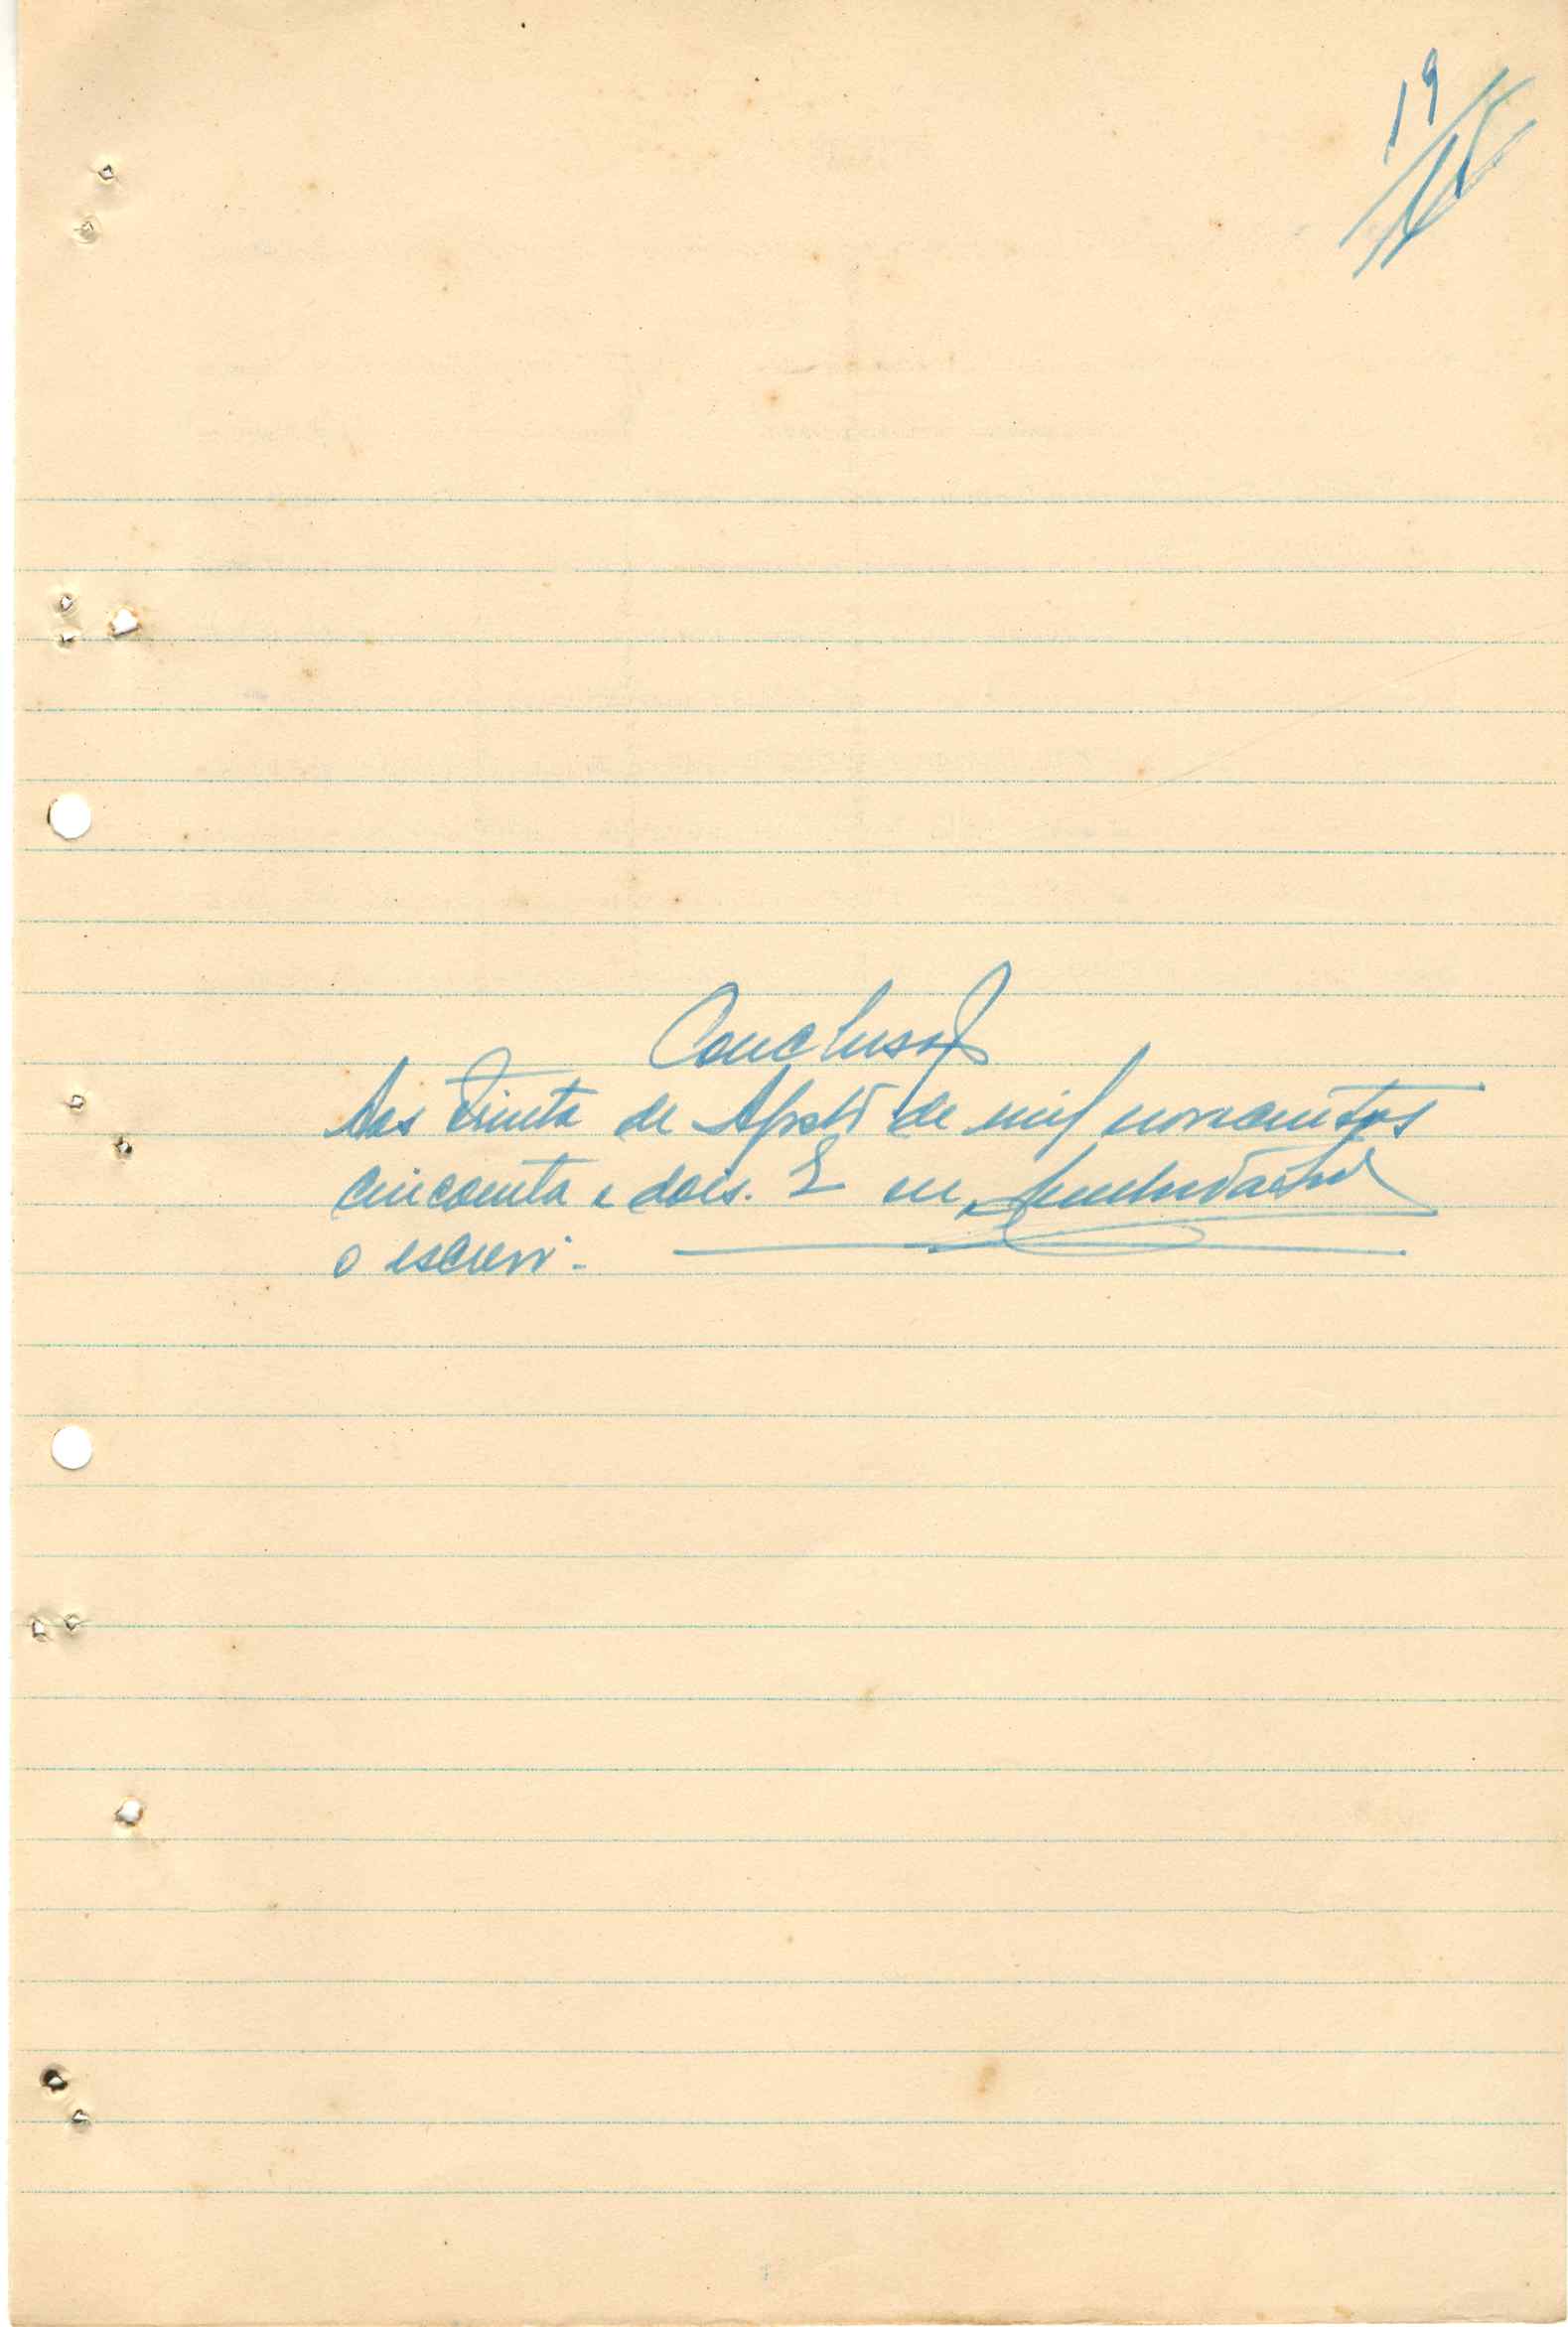 19
Conclusão
Aos trinta de Abril de mil novecentos
cincoenta e dois. E eu,
o escrevi.